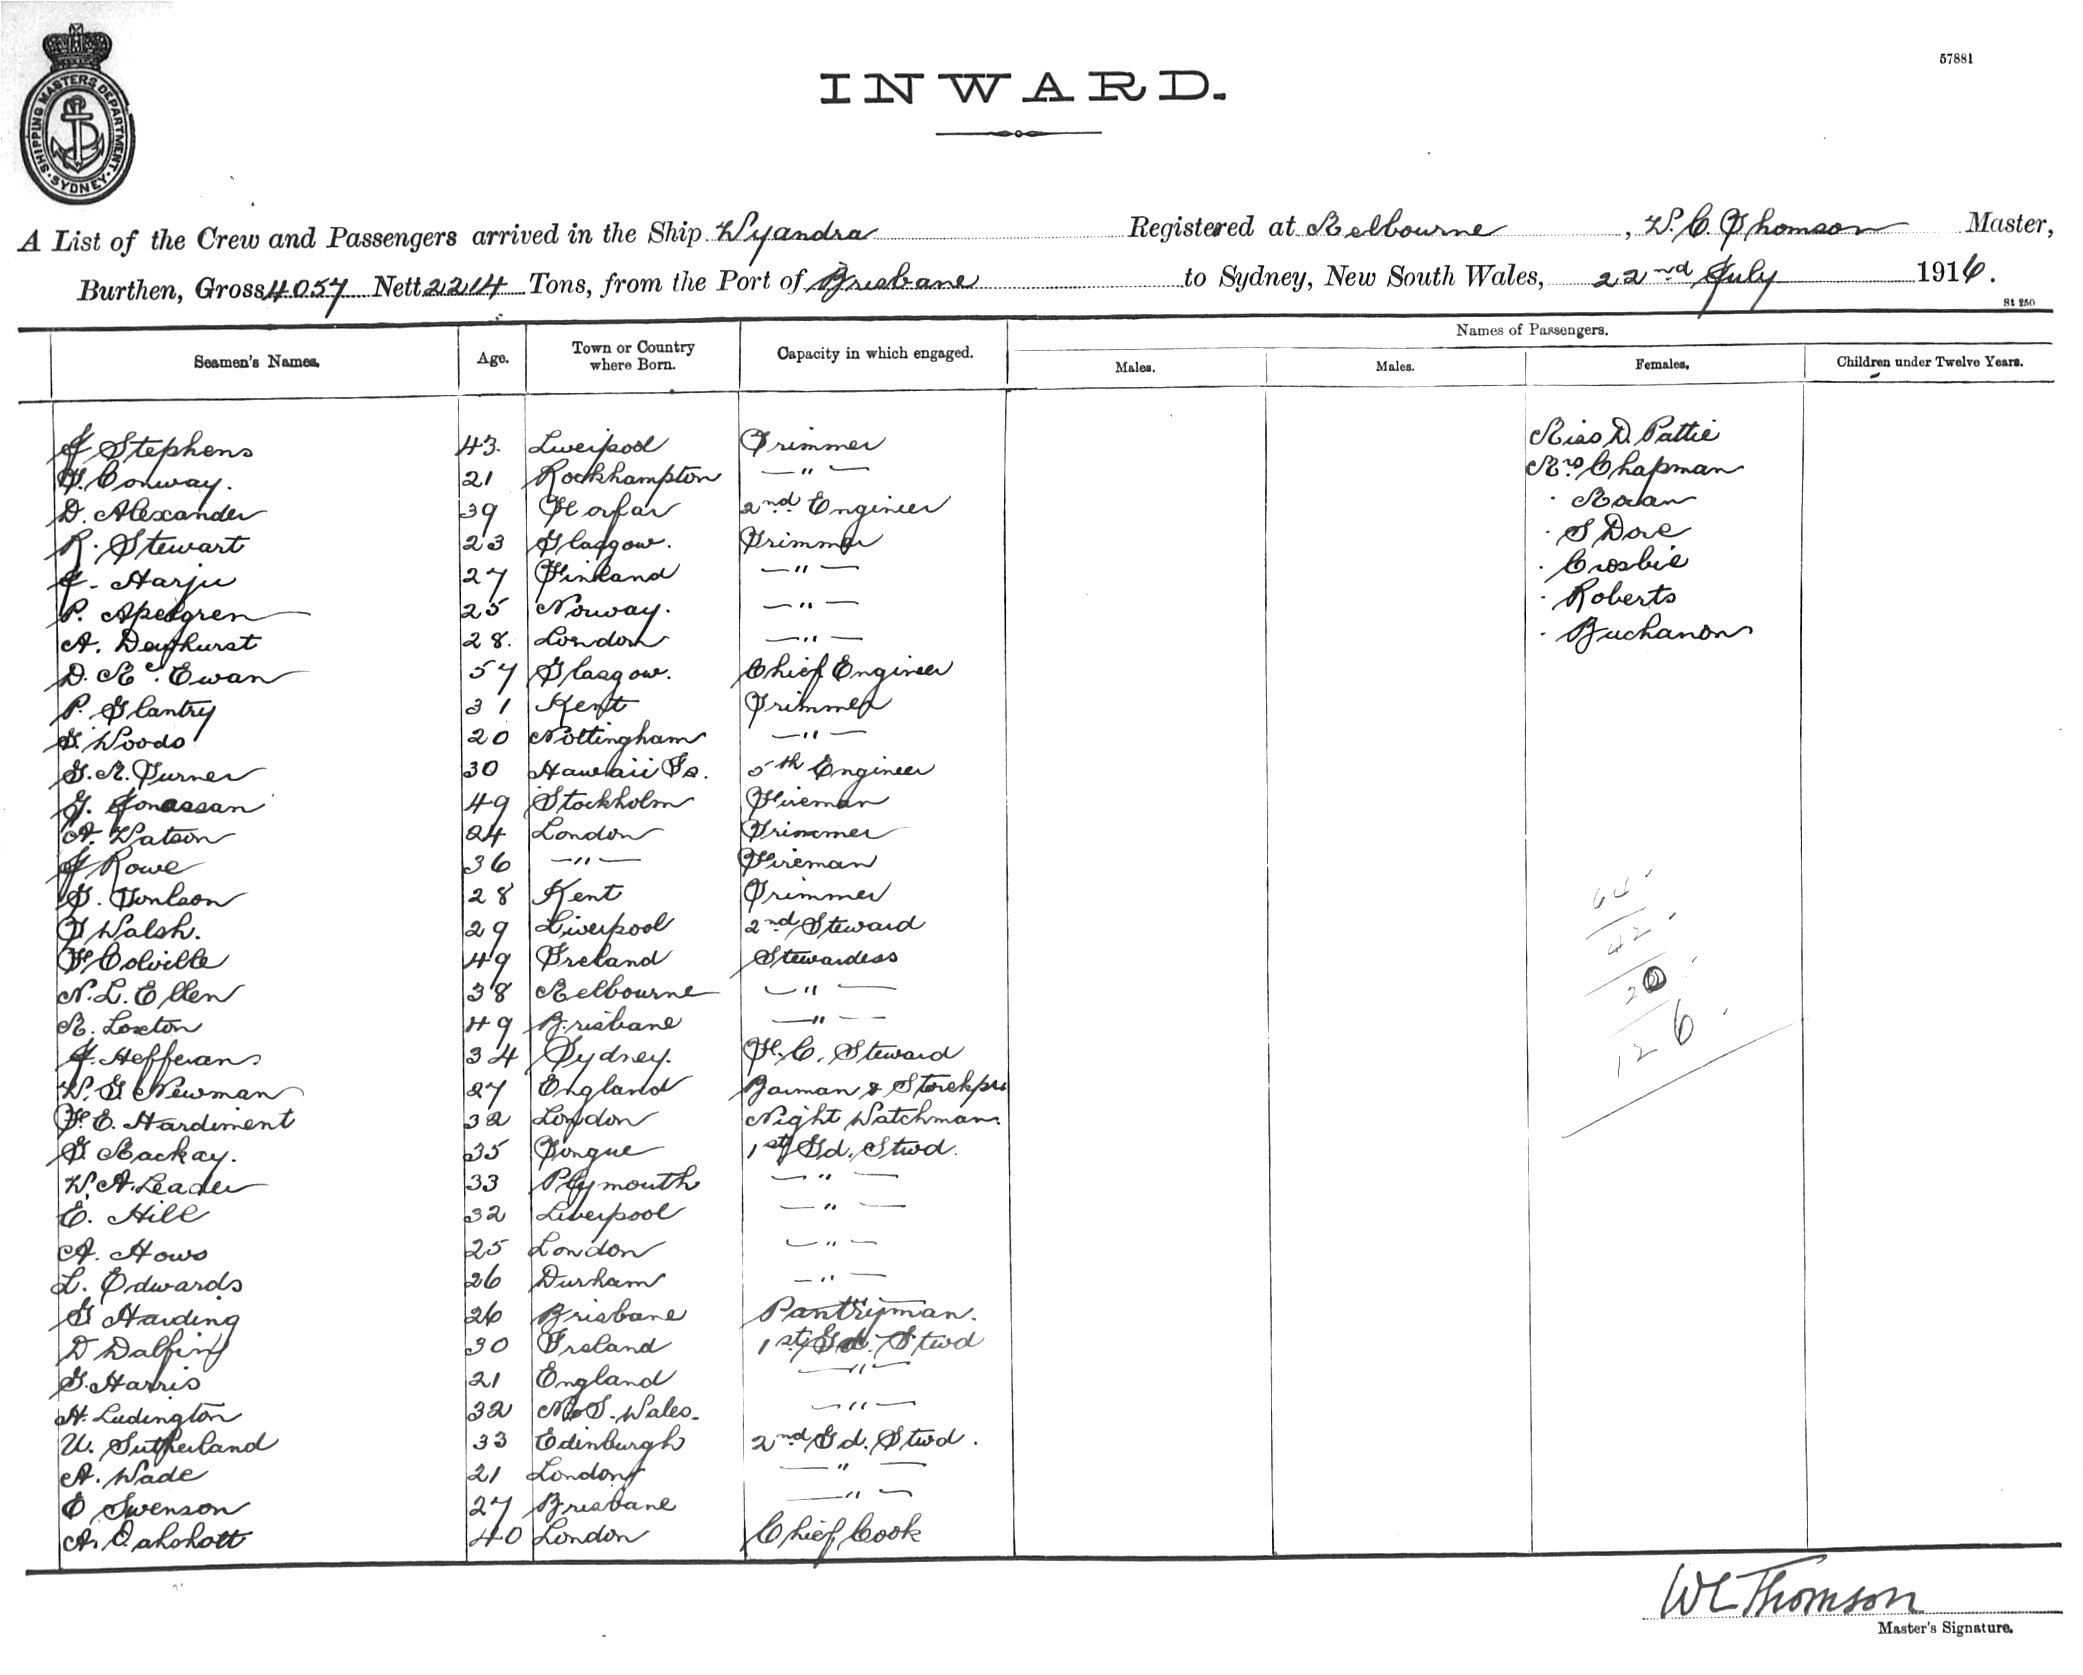 57881
INWARD.
SHIPPING MASTERS DEPARTMENT
SYDNEY
A List of the Crew and Passengers arrived in the Ship Wyandra Registered at Melbourne, W. C. Thomson Master,
Burthen, Gross 4057 Nett 2214 Tons, from the Port of Brisbane to Sydney, New South Wales, 22nd July 1916.
St 250
Names of Passengers.
Seamen's Names. Age. Town or Country where Born. Capacity in which engaged. Males. Males. Females. Children under Twelve Years.
J Stephens 43. Liverpool Trimmer Miss D. Pattie
Conway. 21 Rockhampton —"— Mrs Chapman
D. Alexander 39 Forfar 2nd Engineer "
R. Stewart 23 Glasgow. Trimmer " S Dove
J. Harju 27 Finland —"— " Crosbie
P. Apelgren 25 Norway. —"— " Roberts
A. Dayhurst 28. London —"— " Buchanan
D. McEwan 57 Glasgow. Chief Engineer
P. Glantry 31 Kent Trimmer
G. Woods 20 Nottingham —"—
G. M. Turner 30 Hawaii Is. 5th Engineer
J. Jonassan 49 Stockholm Fireman
A. Watson 24 London Trimmer
J Rowe 36 —"— Fireman
Tomlson 28 Kent Trimmer
T Walsh. 29 Liverpool 2nd Steward
F Colville 49 Ireland Stewardess
N. L. Ellen 38 Melbourne —"—
M. Loxton 49 Brisbane —"—
J. Heffernan 34 Sydney. F. C. Steward
W. G Newman 27 England Barman & Storekpr
F. E. Hardiment 32 London Night Watchman.
G. Mackay. 35 Tongue 1st Gd. Stwd.
W. A. Leader 33 Plymouth —"—
E. Hill 32 Liverpool —"—
A. Hows 25 London —"—
L. Edwards 26 Durham —"—
G Harding 26 Brisbane Pantryman.
D Dalfin 30 Ireland 1st Gd. Stwd
G. Harris 21 England —"—
H. Ludington 32 N. S. Wales. —"—
U. Sutherland 33 Edinburgh 2nd Gd. Stwd.
A. Wade 21 London —"—
E Swenson 27 Brisbane —"—
A. Oakshott 40 London Chief Cook
64
42
20
126
WC Thomson
Master's Signature.